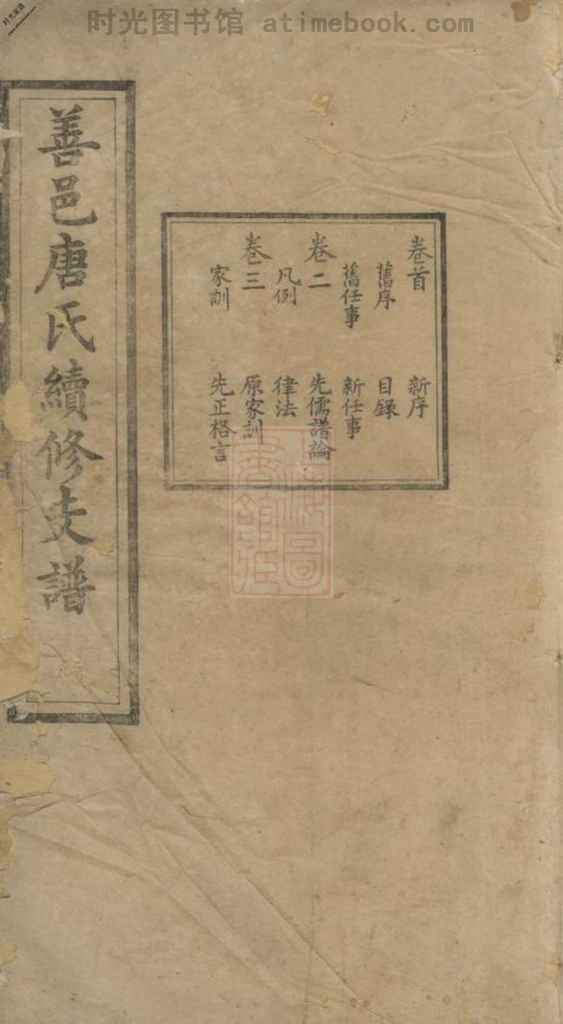 时光图书馆 atimebook.com
善邑唐氏續修支譜
卷首 新序
舊序 目錄
舊任事 新任事
卷二 先儒譜論
凡例 律法
卷三 原家訓
家訓 先正格言